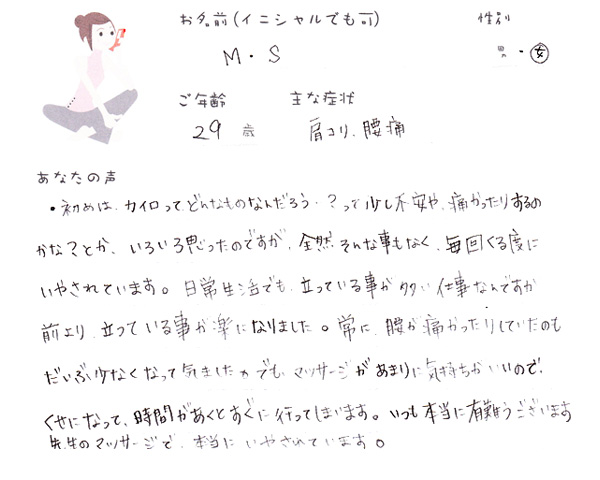 お名前(イニシャルでも可)
性別
M・S
男・女
ご年齢
主な症状
29歳
肩コリ、腰痛
あなたの声
・初めは、カイロって、どんなものなんだろう・?って少し不安や、痛かったりするの
かな?とか、いろいろ思ったのですが、全然そんな事もなく、毎回くる度に
いやされています。日常生活でも、立っている事が多い仕事なんですが
前より、立っている事が楽になりました。常に、腰が痛かったりしていたのも
だいぶ少なくなって気ましたがでも、マッサージがあまりに気持ちがいいので、
くせになって、時間があくとすぐに行ってしまいます。いつも本当に有難うございます
先生のマッサージで、本当にいやされています。